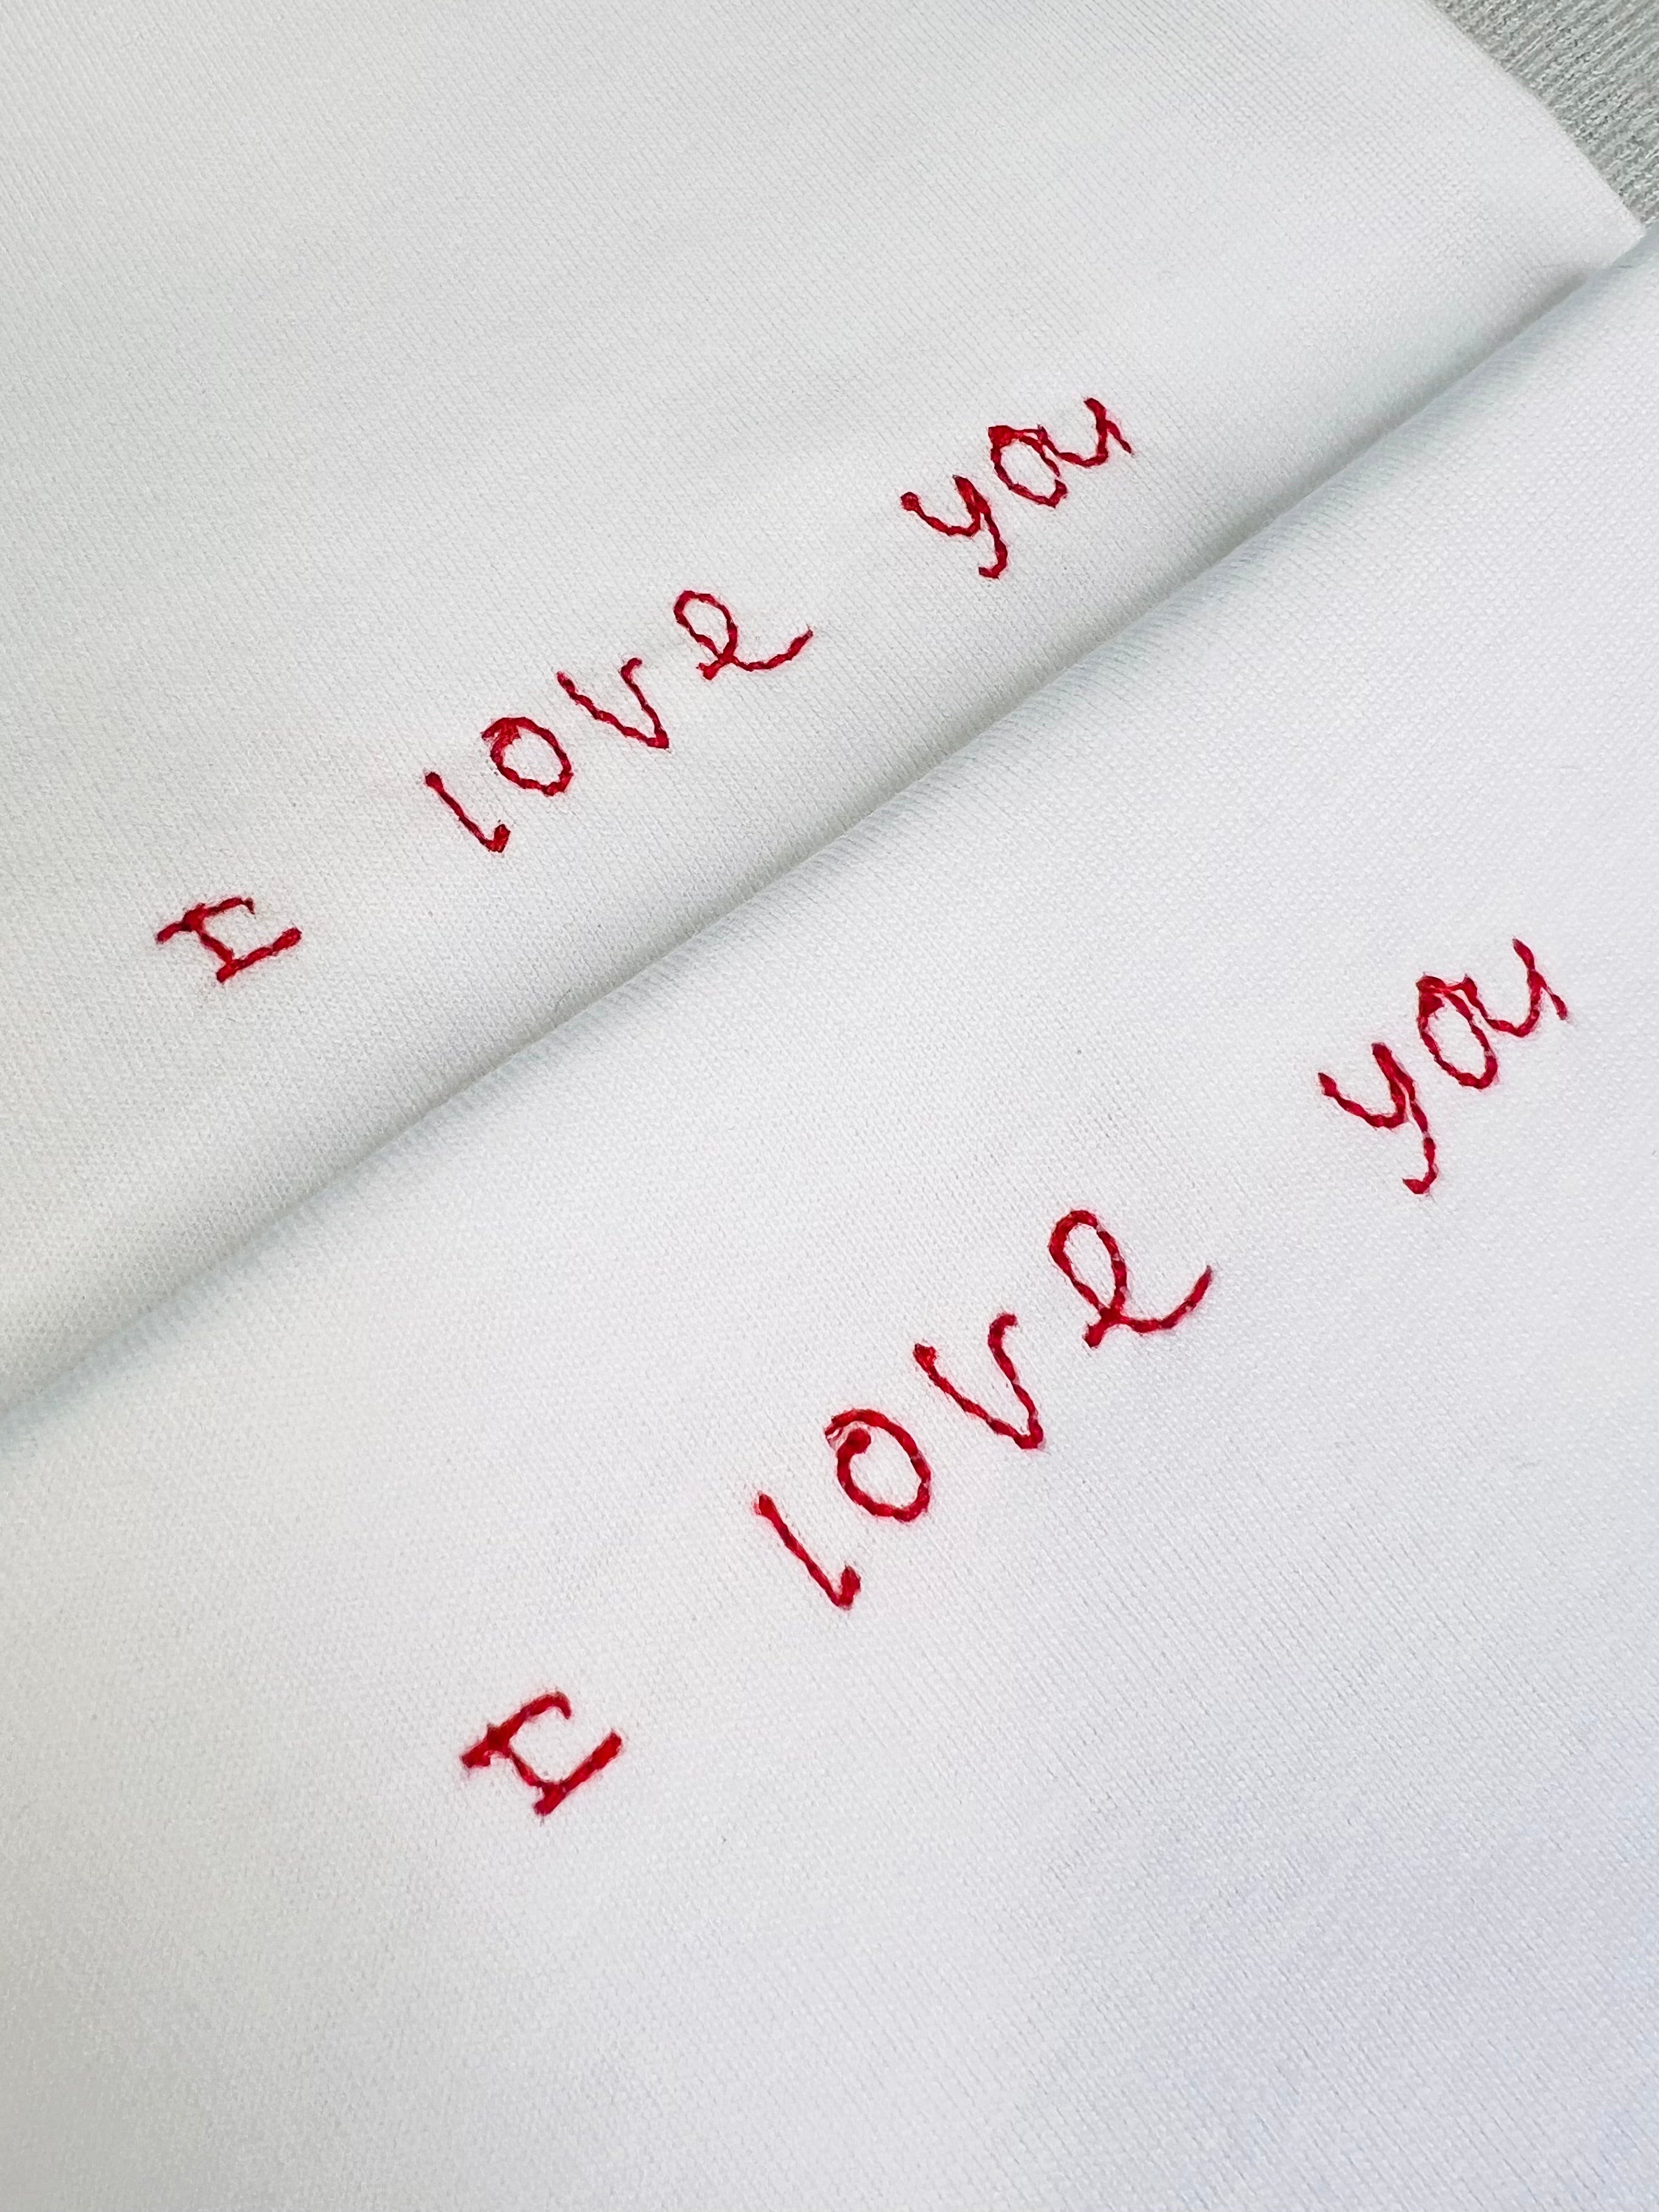 I love you
I love you